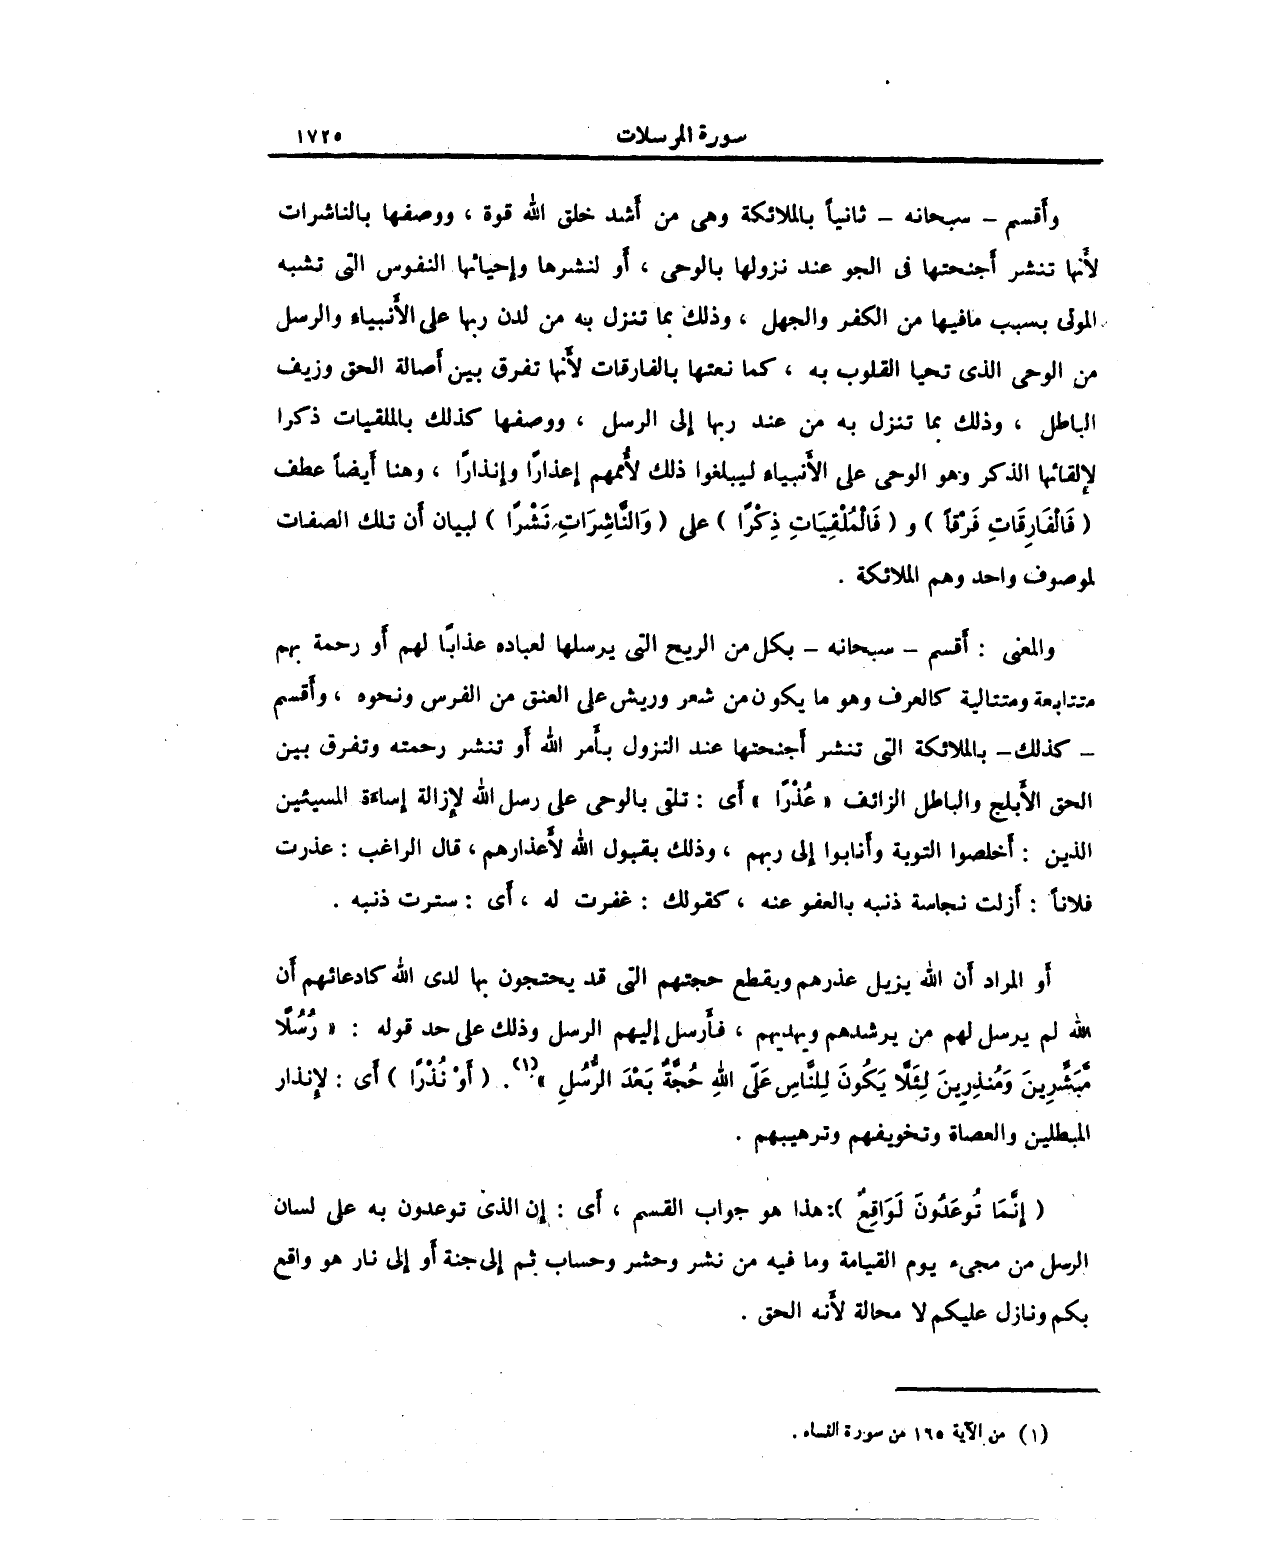 سورة المرسلات ١٧٢٥
وأقسم – سبحانه – ثانياً بالملائكة وهى من أشد خلق الله قوة ، ووصفها بالناشرات
لأنها تنشر أجنحتها فى الجو عند نزولها بالوحى ، أو لنشرها وإحيائها النفوس التى تشبه
الموتى بسبب مافيها من الكفر والجهل ، وذلك بما تنزل به من لدن ربها على الأنبياء والرسل
من الوحى الذى تحيا القلوب به ، كما نعتها بالفارقات لأنها تفرق بين أصالة الحق وزيف
الباطل ، وذلك بما تنزل به من عند ربها إلى الرسل ، ووصفها كذلك بالملقيات ذكرا
لإلقائها الذكر وهو الوحى على الأنبياء ليبلغوا ذلك لأممهم إعذارًا وإنذارًا ، وهنا أيضاً عطف
( فَالْفَارِقَاتِ فَرْقاً ) و ( فَالْمُلْقِيَاتِ ذِكْرًا ) على ( وَالنَّاشِرَاتِ نَشْرًا ) لبيان أن تلك الصفات
لموصوف واحد وهم الملائكة .
والمعنى : أقسم – سبحانه – بكل من الريح التى يرسلها لعباده عذابًا لهم أو رحمة بهم
متتابعة ومتتالية كالعرف وهو ما يكون من شعر وريش على العنق من الفرس ونحوه ، وأقسم
– كذلك – بالملائكة التى تنشر أجنحتها عند النزول بأمر الله أو تنشر رحمته وتفرق بين
الحق الأبلج والباطل الزائف « عُذْرًا » أى : تلقى بالوحى على رسل الله لإزالة إساءة المسيئين
الذين : أخلصوا التوبة وأنابوا إلى ربهم ، وذلك بقبول الله لأعذارهم ، قال الراغب : عذرت
فلاناً : أزلت نجاسة ذنبه بالعفو عنه ، كقولك : غفرت له ، أى : سترت ذنبه .
أو المراد أن الله يزيل عذرهم ويقطع حجتهم التى قد يحتجون بها لدى الله كادعائهم أن
الله لم يرسل لهم من يرشدهم ويهديهم ، فأرسل إليهم الرسل وذلك على حد قوله : « رُسُلًا
مُّبَشِّرِينَ وَمُنذِرِينَ لِئَلَّا يَكُونَ لِلنَّاسِ عَلَى اللهِ حُجَّةٌ بَعْدَ الرُّسُلِ » (١). ( أَوْ نُذْرًا ) أى : لإنذار
المبطلين والعصاة وتخويفهم وترهيبهم .
( إِنَّمَا تُوعَدُونَ لَوَاقِعٌ ): هذا هو جواب القسم ، أى : إن الذى توعدون به على لسان
الرسل من مجىء يوم القيامة وما فيه من نشر وحشر وحساب ثم إلى جنة أو إلى نار هو واقع
بكم ونازل عليكم لا محالة لأنه الحق .
(١) من الآية ١٦٥ من سورة النساء .